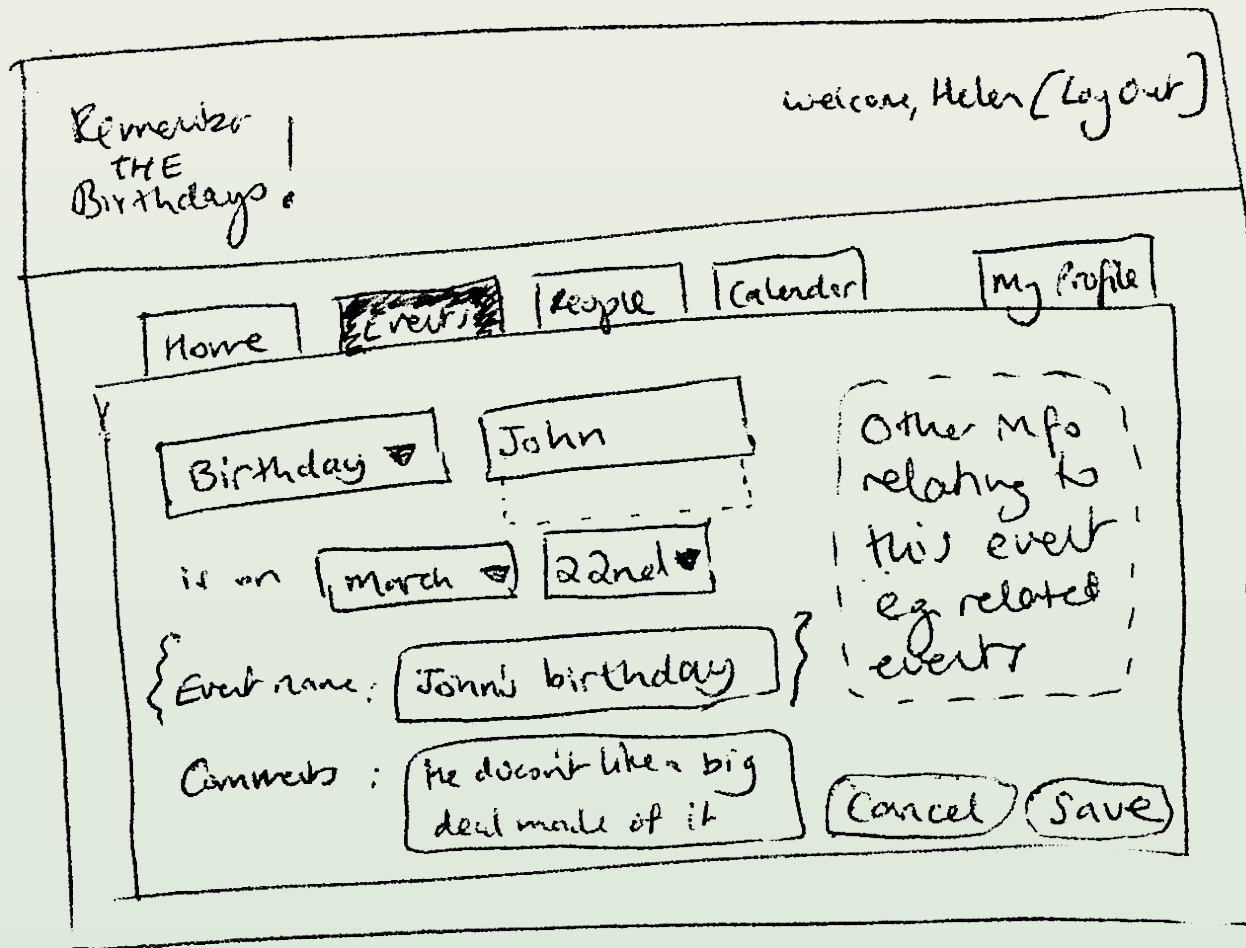 Remember
THE
Birthdays!
welcome, Helen [Log Out]
Home
Events
People
Calendar
My Profile
Birthday
John
is on
March
22nd
Event name:
John's birthday
Comments:
He doesn't like a big
deal made of it
Other info
relating to
this event
eg related
events
Cancel
Save